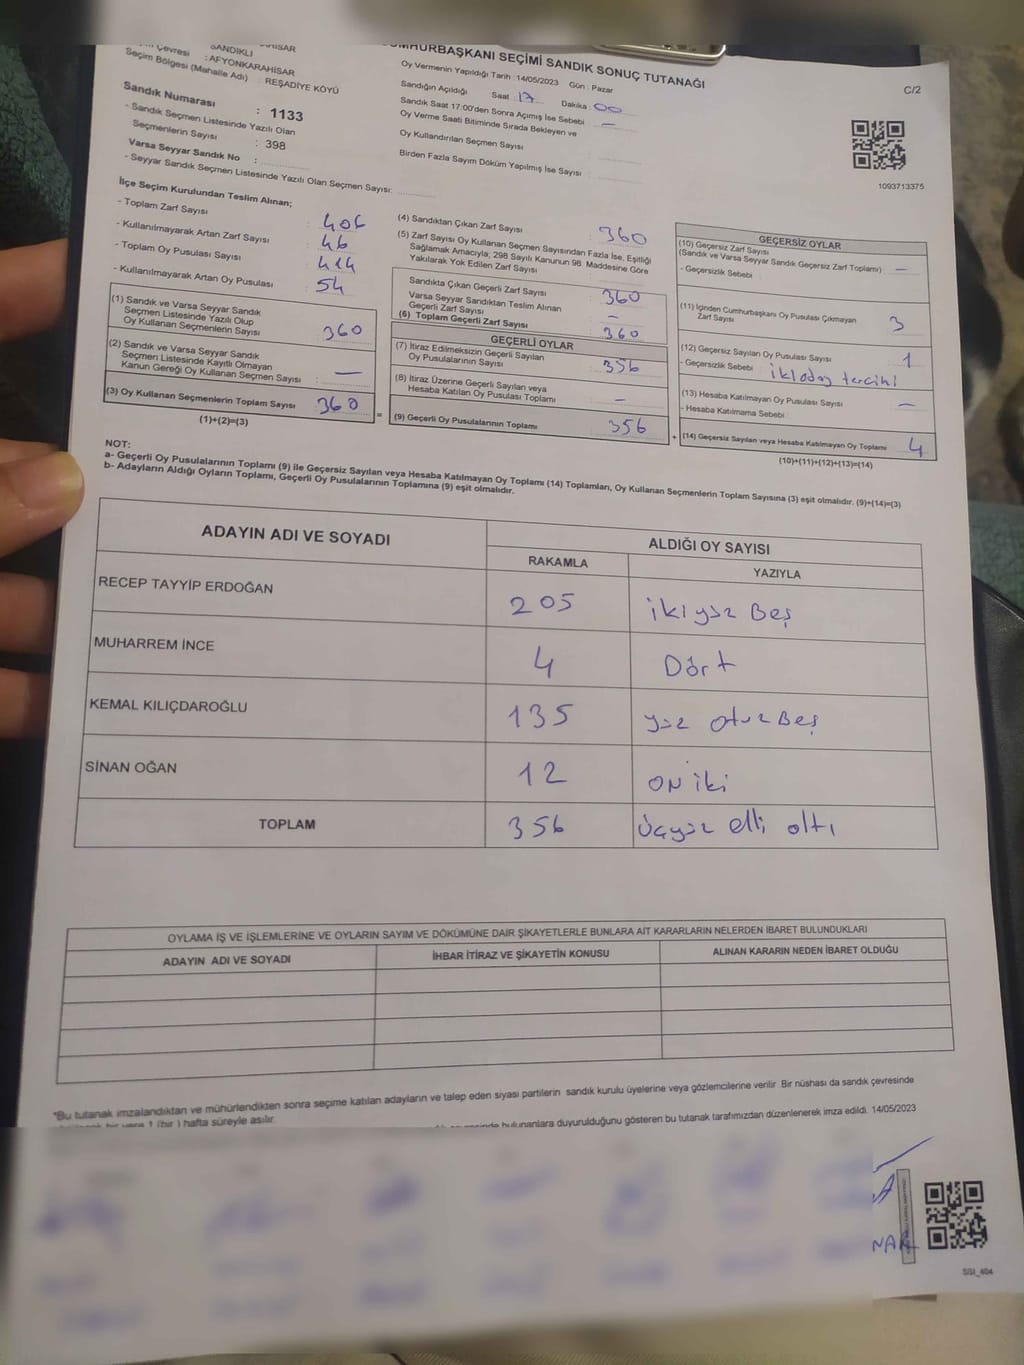 CUMHURBAŞKANI SEÇİMİ SANDIK SONUÇ TUTANAĞI
C/2
SANDIKLI
Çevresi : AFYONKARAHİSAR
Seçim Bölgesi (Mahalle Adı) : REŞADİYE KÖYÜ
Sandık Numarası : 1133
- Sandık Seçmen Listesinde Yazılı Olan
Seçmenlerin Sayısı : 398
Varsa Seyyar Sandık No :
- Seyyar Sandık Seçmen Listesinde Yazılı Olan Seçmen Sayısı:
Oy Vermenin Yapıldığı Tarih :14/05/2023 Gün : Pazar
Sandığın Açıldığı Saat : 17 Dakika : 00
Sandık Saat 17:00'den Sonra Açımış İse Sebebi : —
Oy Verme Saati Bitiminde Sırada Bekleyen ve
Oy Kullandırılan Seçmen Sayısı
Birden Fazla Sayım Döküm Yapılmış İse Sayısı :
1093713375
İlçe Seçim Kurulundan Teslim Alınan;
- Toplam Zarf Sayısı : 406
- Kullanılmayarak Artan Zarf Sayısı : 46
- Toplam Oy Pusulası Sayısı : 414
- Kullanılmayarak Artan Oy Pusulası : 54
(1) Sandık ve Varsa Seyyar Sandık
Seçmen Listesinde Yazılı Olup
Oy Kullanan Seçmenlerin Sayısı : 360
(2) Sandık ve Varsa Seyyar Sandık
Seçmen Listesinde Kayıtlı Olmayan
Kanun Gereği Oy Kullanan Seçmen Sayısı : —
(3) Oy Kullanan Seçmenlerin Toplam Sayısı : 360
(1)+(2)=(3)
(4) Sandıktan Çıkan Zarf Sayısı : 360
(5) Zarf Sayısı Oy Kullanan Seçmen Sayısından Fazla İse, Eşitliği
Sağlamak Amacıyla, 298 Sayılı Kanunun 98. Maddesine Göre
Yakılarak Yok Edilen Zarf Sayısı
Sandıkta Çıkan Geçerli Zarf Sayısı : 360
Varsa Seyyar Sandıktan Teslim Alınan
Geçerli Zarf Sayısı : —
(6) Toplam Geçerli Zarf Sayısı : 360
GEÇERLİ OYLAR
(7) İtiraz Edilmeksizin Geçerli Sayılan
Oy Pusulalarının Sayısı : 356
(8) İtiraz Üzerine Geçerli Sayılan veya
Hesaba Katılan Oy Pusulası Toplamı : —
(9) Geçerli Oy Pusulalarının Toplamı : 356
=
+
GEÇERSİZ OYLAR
(10) Geçersiz Zarf Sayısı
(Sandık ve Varsa Seyyar Sandık Geçersiz Zarf Toplamı) : —
- Geçersizlik Sebebi :
(11) İçinden Cumhurbaşkanı Oy Pusulası Çıkmayan
Zarf Sayısı : 3
(12) Geçersiz Sayılan Oy Pusulası Sayısı : 1
- Geçersizlik Sebebi : iki aday tercihi
(13) Hesaba Katılmayan Oy Pusulası Sayısı : —
- Hesaba Katılmama Sebebi :
(14) Geçersiz Sayılan veya Hesaba Katılmayan Oy Toplamı : 4
(10)+(11)+(12)+(13)=(14)
NOT:
a- Geçerli Oy Pusulalarının Toplamı (9) ile Geçersiz Sayılan veya Hesaba Katılmayan Oy Toplamı (14) Toplamları, Oy Kullanan Seçmenlerin Toplam Sayısına (3) eşit olmalıdır. (9)+(14)=(3)
b- Adayların Aldığı Oyların Toplamı, Geçerli Oy Pusulalarının Toplamına (9) eşit olmalıdır.
ADAYIN ADI VE SOYADI ALDIĞI OY SAYISI
RAKAMLA YAZIYLA
RECEP TAYYİP ERDOĞAN 205 iki yüz Beş
MUHARREM İNCE 4 Dört
KEMAL KILIÇDAROĞLU 135 yüz otuz Beş
SİNAN OĞAN 12 ON iki
TOPLAM 356 Üçyüz elli altı
OYLAMA İŞ VE İŞLEMLERİNE VE OYLARIN SAYIM VE DÖKÜMÜNE DAİR ŞİKAYETLERLE BUNLARA AİT KARARLARIN NELERDEN İBARET BULUNDUKLARI
ADAYIN ADI VE SOYADI İHBAR İTİRAZ VE ŞİKAYETİN KONUSU ALINAN KARARIN NEDEN İBARET OLDUĞU
*Bu tutanak imzalandıktan ve mühürlendikten sonra seçime katılan adayların ve talep eden siyasi partilerin sandık kurulu üyelerine veya gözlemcilerine verilir. Bir nüshası da sandık çevresinde
bir yere 1 (bir ) hafta süreyle asılır.
bulunanlara duyurulduğunu gösteren bu tutanak tarafımızdan düzenlenerek imza edildi. 14/05/2023
SSI_404